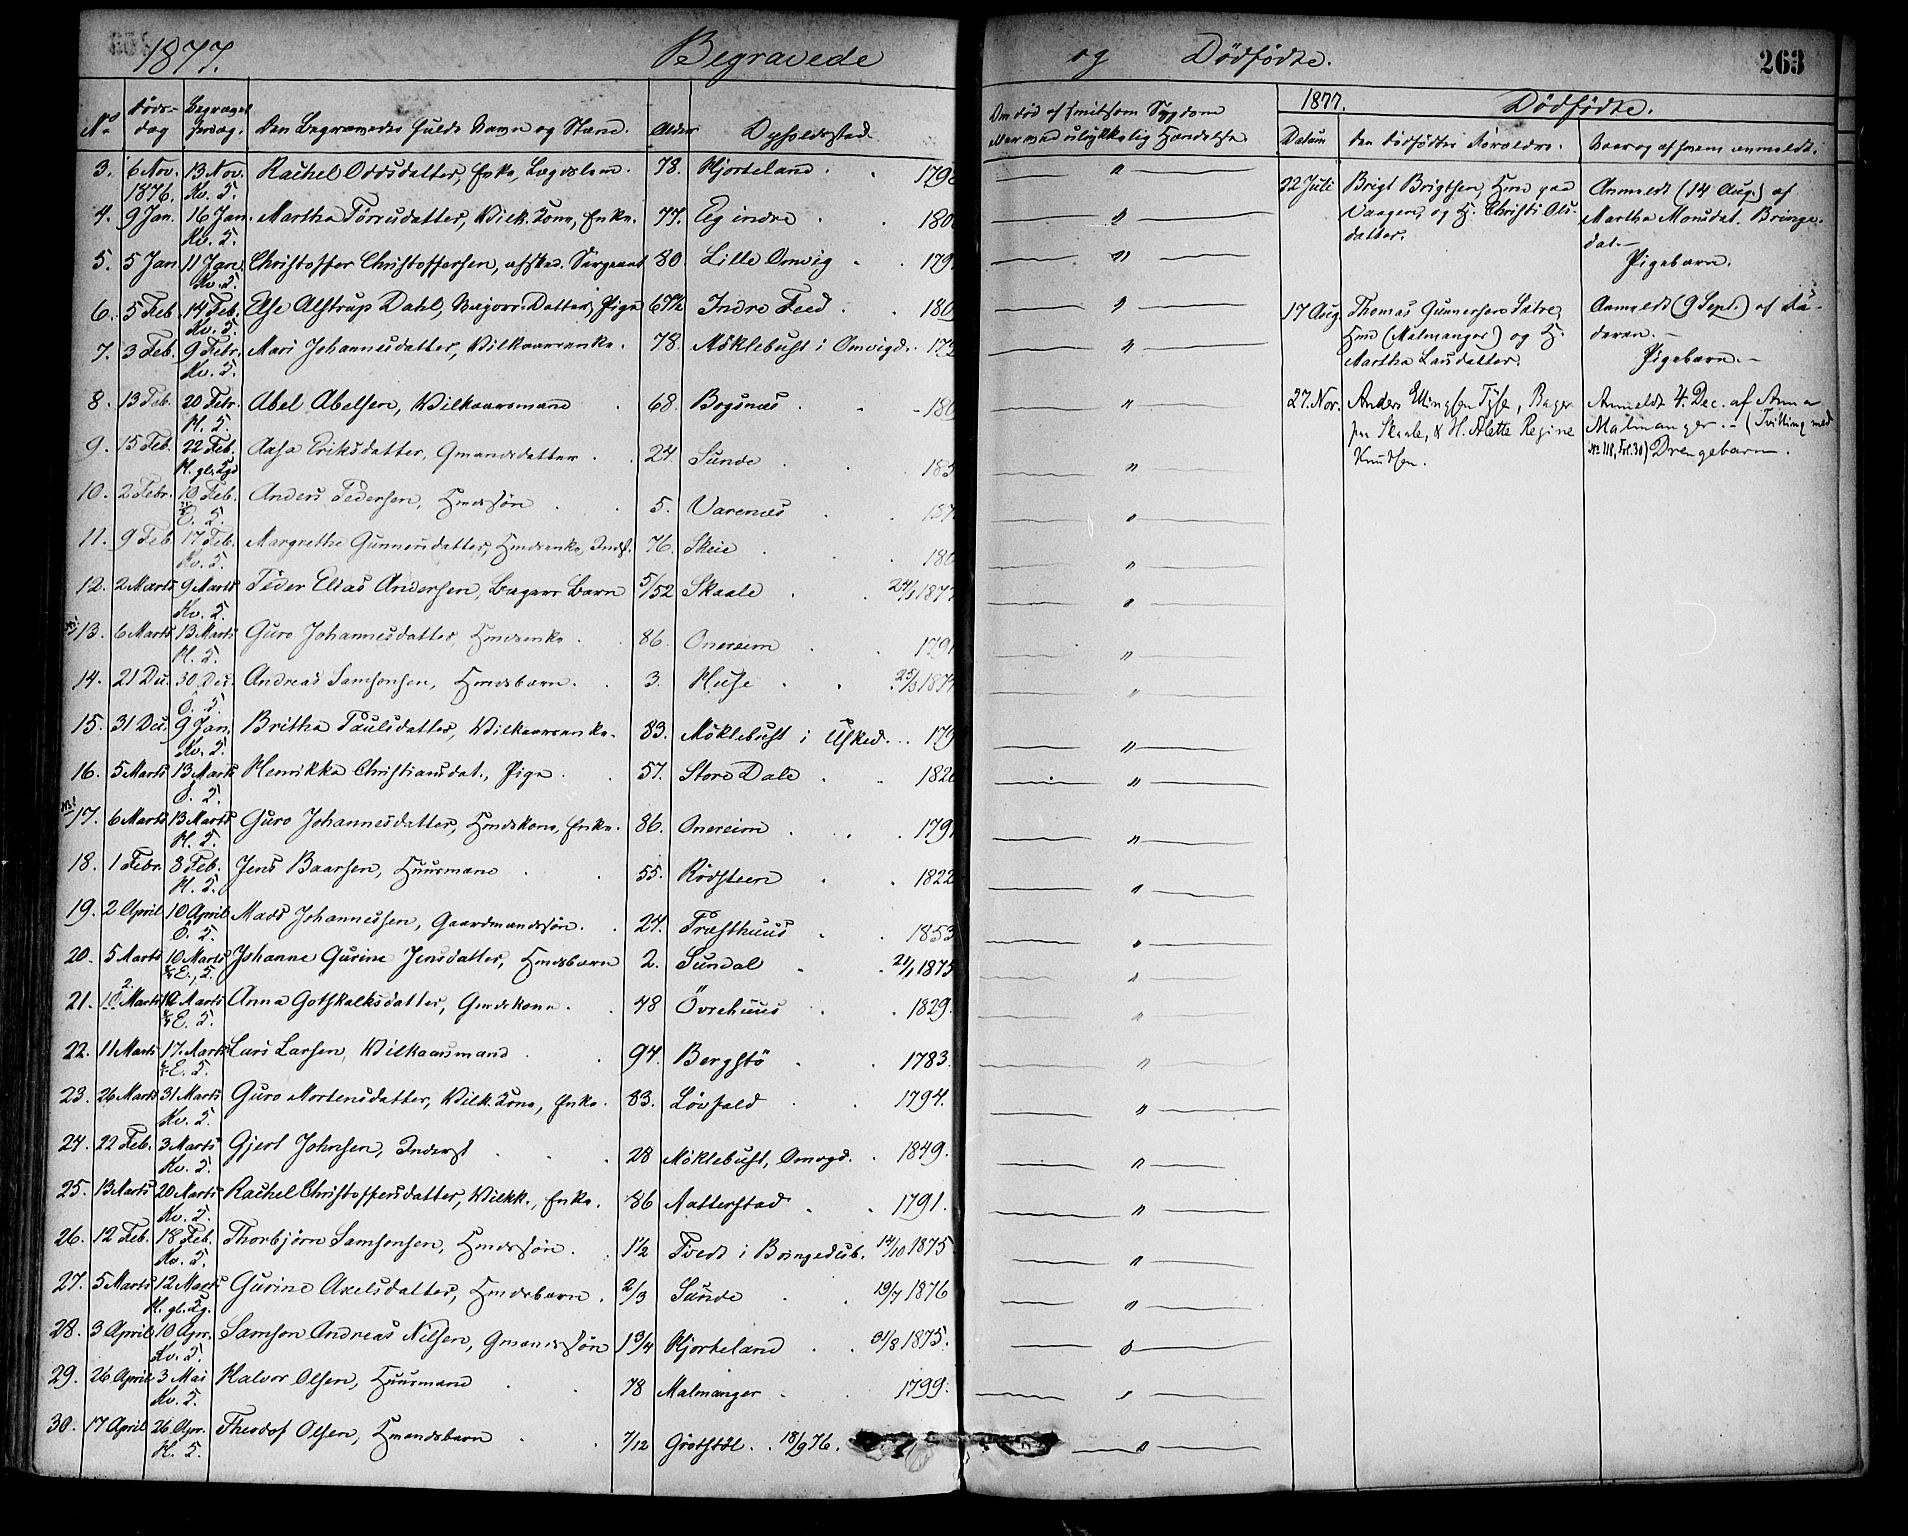 1877. Begravede og Dødfødte. 263
No Døds-dag Begravelsesdag. Den Begravedes fulde Navn og Stand. Alder Opholdssted.
3. 6 Nov. 1876. 13 Nov. Kv. S. Rachel Oddsdatter, Enke, Lægdslem. 78. Hjorteland. 179
4. 9 Jan. 16 Jan. Kv. S. Martha Tørresdatter, Vilk. Kone, Enke. 77. Eg indre 180
5. 5 Jan. 11 Jan. Kv. S. Christoffer Christoffersen, afsked. Sergeant 80. Lille Omvig 179
6. 5 Feb. 14 Feb. Kv. S. Else Alstrup Dahl, Datter, Pige 67½ Indre Feed 180
7. 3 Feb. 9 Febr. Kv. S. Mari Johannesdatter, Vilkaarsenke. 78. Møklebust i Omvigd.
8. 13 Feb. 20 Febr. H. S. Abel Abelsen, Vilkaarsmand 68. Bogsnæs 180
9. 15 Feb. 22 Feb. H. gl. Kgd Aasa Eriksdatter, Gmandsdatter 24. Sunde 185
10. 2 Febr. 10 Feb. E. S. Anders Pedersen, Hmdssøn 5. Varenæs 187
11. 9 Feb. 17 Feb. Kv. S. Margrethe Gunnersdatter, Hmdsenke, Inds. 76. Skeie 180
12. 2 Marts 9 Marts Kv. S. Peder Elias Andersen, Bagers Barn 5/52 Skaale 24/1 1877
NB! 13. 6 Marts 13 Marts H. S. Guro Johannesdatter, Hmdsenke 86. Onereim 1791
14. 21 Dec. 30 Dec. Ø. S. Andreas Samsonsen, Hmdsbarn. 3. Huse 25/3 187
15. 31 Dec. 9 Jan. Kv. S. Britha Paulsdatter, Vilkaarsenke. 83. Møklebust i Usked. 179
16. 5 Marts 13 Marts Ø. S. Henrikka Christiansdat., Pige 57. Store Dale 1820
NB! 17. 6 Marts 13 Marts H. S. Guro Johannesdatter, Hmdskone, Enke. 86. Onereim 1791
18. 1 Febr. 8 Feb. H. S. Jens Baarsen, Huusmand 55. Rødsteen 1822
19. 2 April 10 April Ø. S. Mads Johannessen, Gaardmandssøn. 24. Præsthuus 1853
20. 5 Marts 10 Marts E. S. Johanne Gurine Jensdatter, Hmdsbarn 2. Sundal 21/1 1875
21. 10 Marts 12 Marts E. S. Anna Gotskalksdatter, Gmdskone 48 Øvrehuus 1829.
22. 11 Marts 17. Marts E. S. Lars Larsen, Vilkaarsmand 94. Bergstø 1783.
23. 26 Marts 31 Marts Kv. S. Guro Mortensdatter, Vilk. Kone, Enke. 83. Løvfald 1794.
24. 22 Feb. 3 Marts Kv. S. Gjert Johnsen, Inderst 28 Møklebust, Omvgd. 1849.
25. 13 Marts 20 Marts Kv. S. Rachel Christoffersdatter, Vilkk., Enke. 86 Natterstad 1791.
26. 12 Feb. 18 Feb. Kv. S. Thorbjørn Samsonsen, Hmdssøn 1½ Tvedt i Bringedsb. 14/10 1875.
27. 5 Marts 12 Marts H. gl. Kg. Gurine Axelsdatter, Hmdsbarn 2/3 Sunde 19/7 1876
28. 3 April 10 Apr. Kv. S. Samson Andreas Nilsen, Gmandssøn 1¾ Hjorteland 31/8 1875.
29. 26 April 3 Mai Kv. S. Halvor Olsen, Huusmand 78 Malmanger 1799.
30. 17 April 26 Apr. H. S. Theodof Olsen, Hmandsbarn 7/12 Grøtstøl 18/9 76.
Om død af smitsom Sygdom
eller ved ulykkelig Hændelse
1877. Dødfødte.
Datum Den dødfødtes Forældre. Naar og af hvem anmeldt.
22 Juli Brigt Brigtsen, Hmd paa Anmeldt (14 Aug.) af
Vaagen, og H. Christi Ols- Martha Monsdat. Bringe-
datter. dal.
Pigebarn.
17 Aug. Thomas Gunnersen Sætre, Anmeldt (9 Sept.) af Fa-
Hmd (Malmanger) og H. deren.
Martha Larsdatter. Pigebarn.
27. Nov. Anders Ellingsen Tyse, Bager Anmeldt 4. Dec. af Anna
paa Skaale, & H. Alette Regine Malmanger. (Tvilling med
Knudsen. No 118, Fol. 30) Drengebarn.